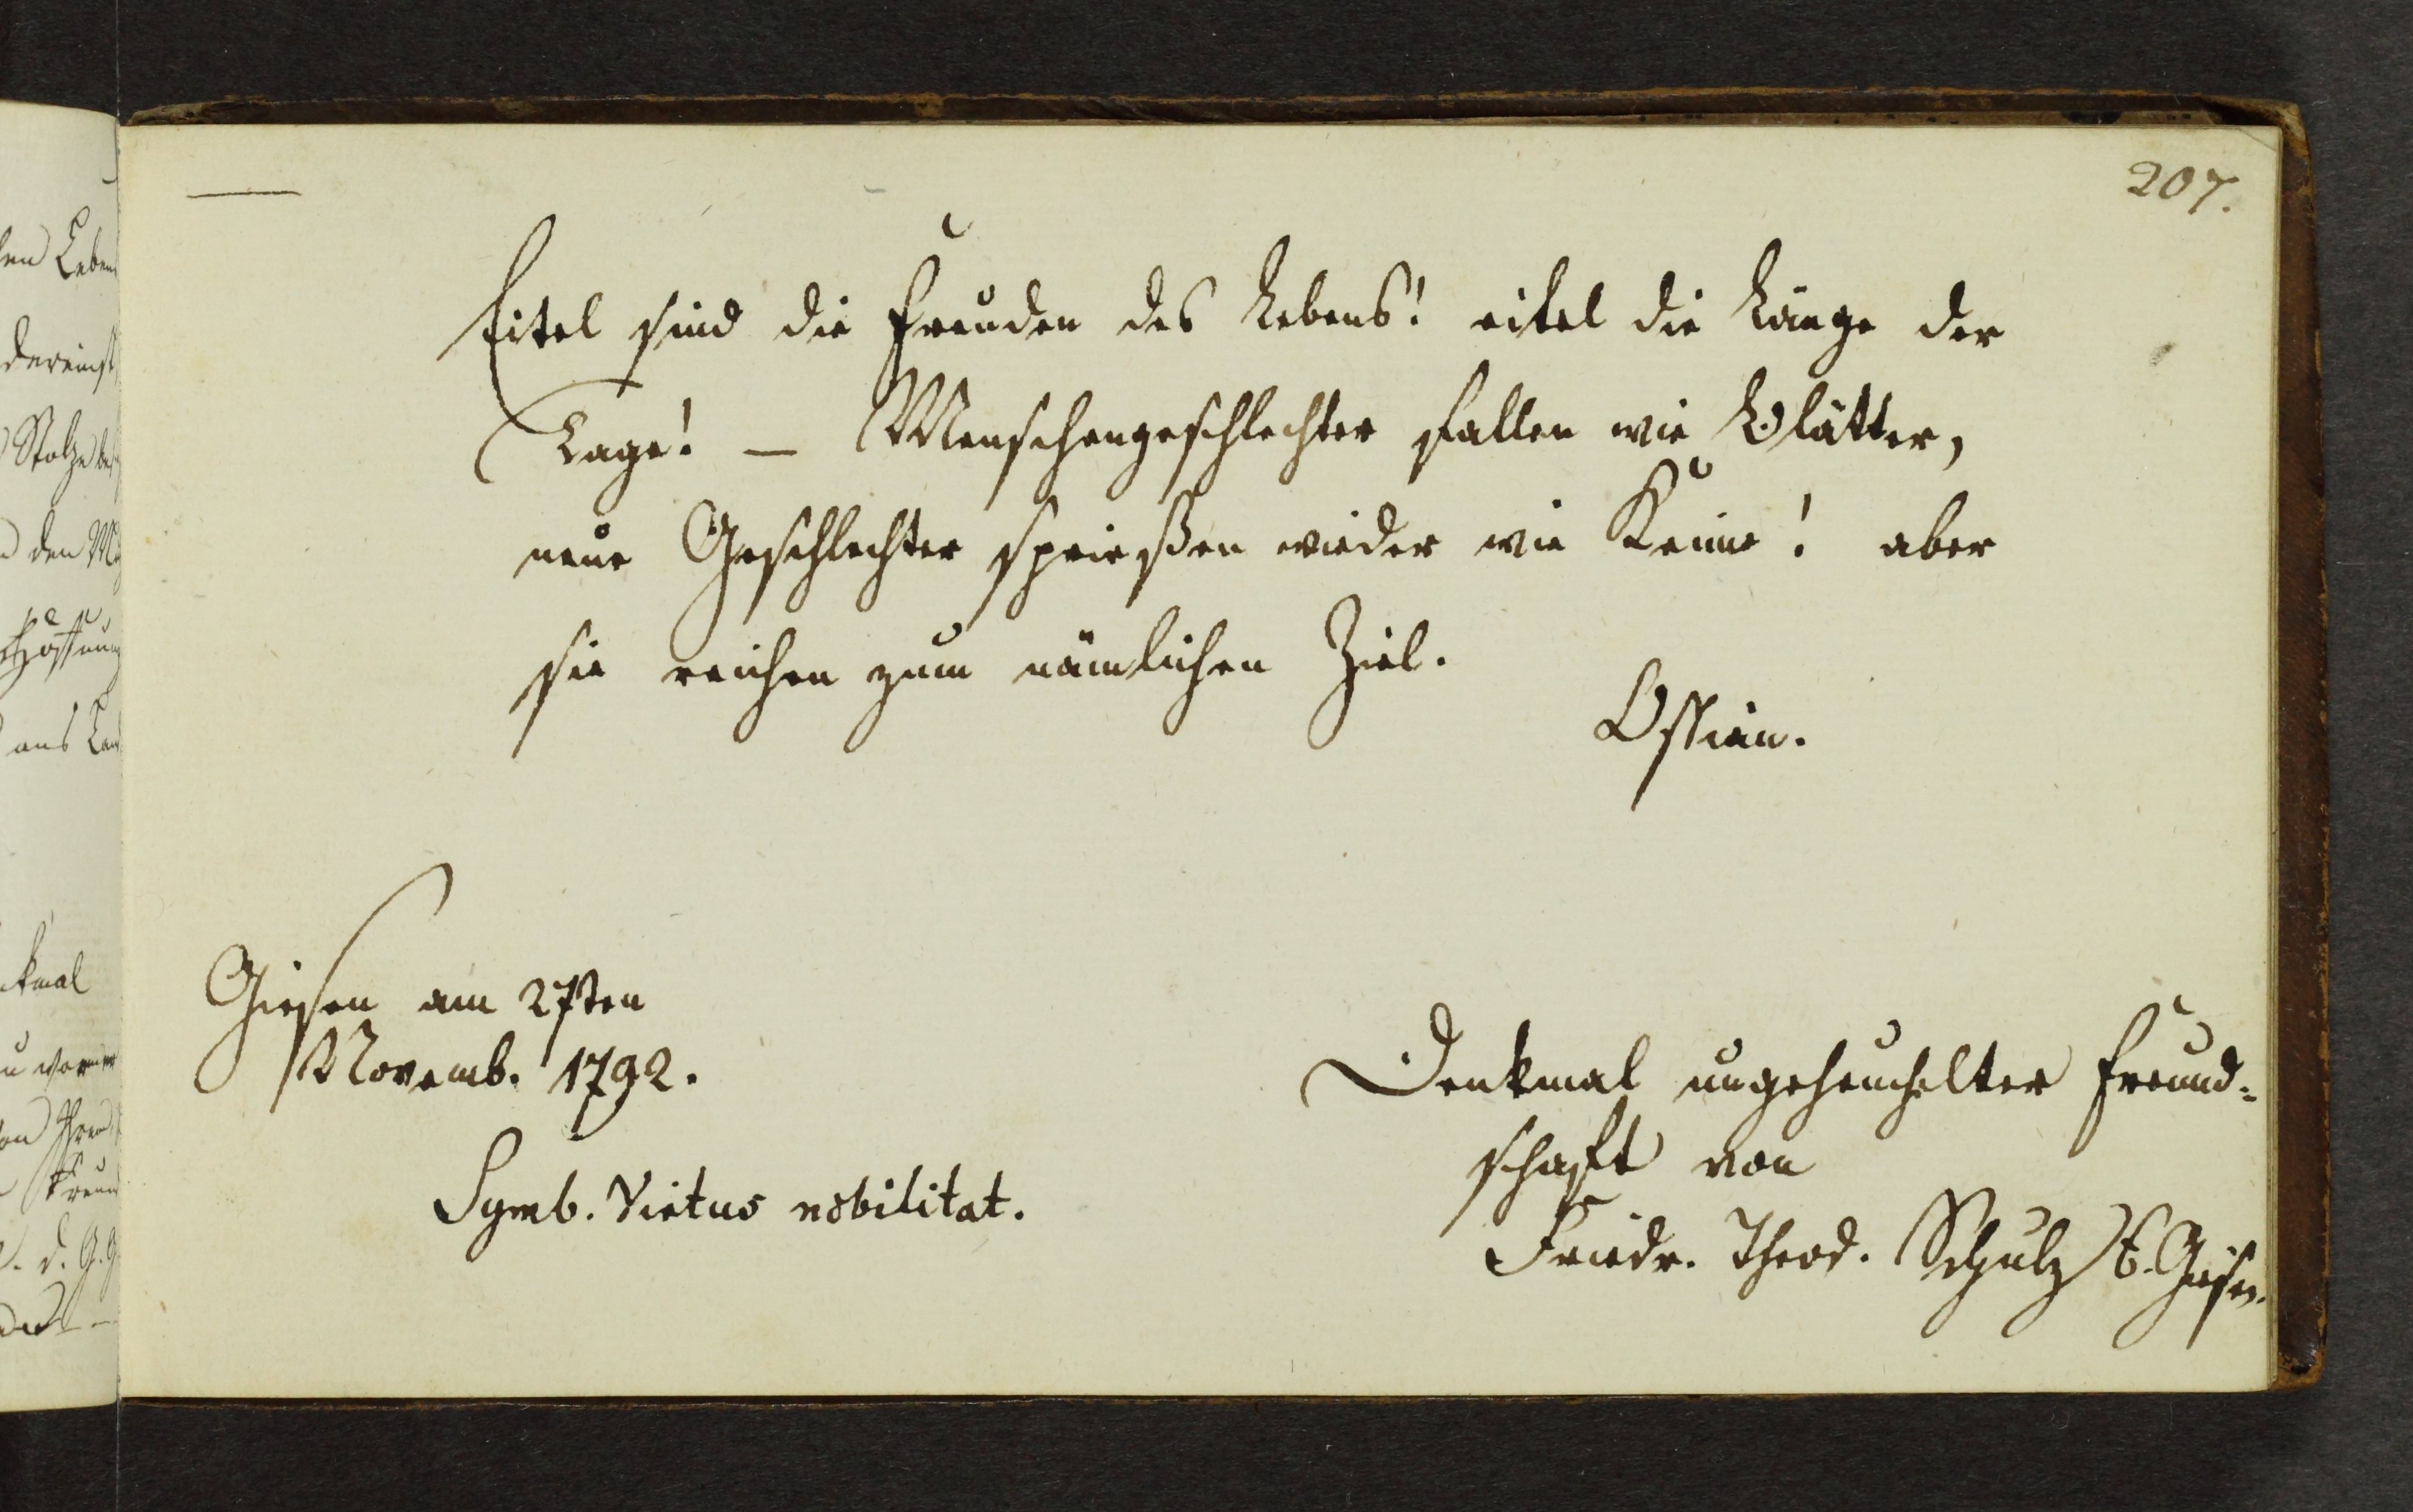 207.
Eitel sind die Freuden des Lebens! eitel die Länge der
Tage! — Menschengeschlechter fallen wie Blätter,
neue Geschlechter sprießen wieder wie Keime! aber
sie reichen zum nämlichen Ziel.
Ossian.
Giesen am 27sten
Novemb. 1792.
Symb. Virtus nobilitat.
Denkmal ungeheuchelter Freund-
schaft von
Friedr. Theod. Schulz Giesen.
den Leben
dereinst
Stolze
den
Hoffnung
ans
kmal